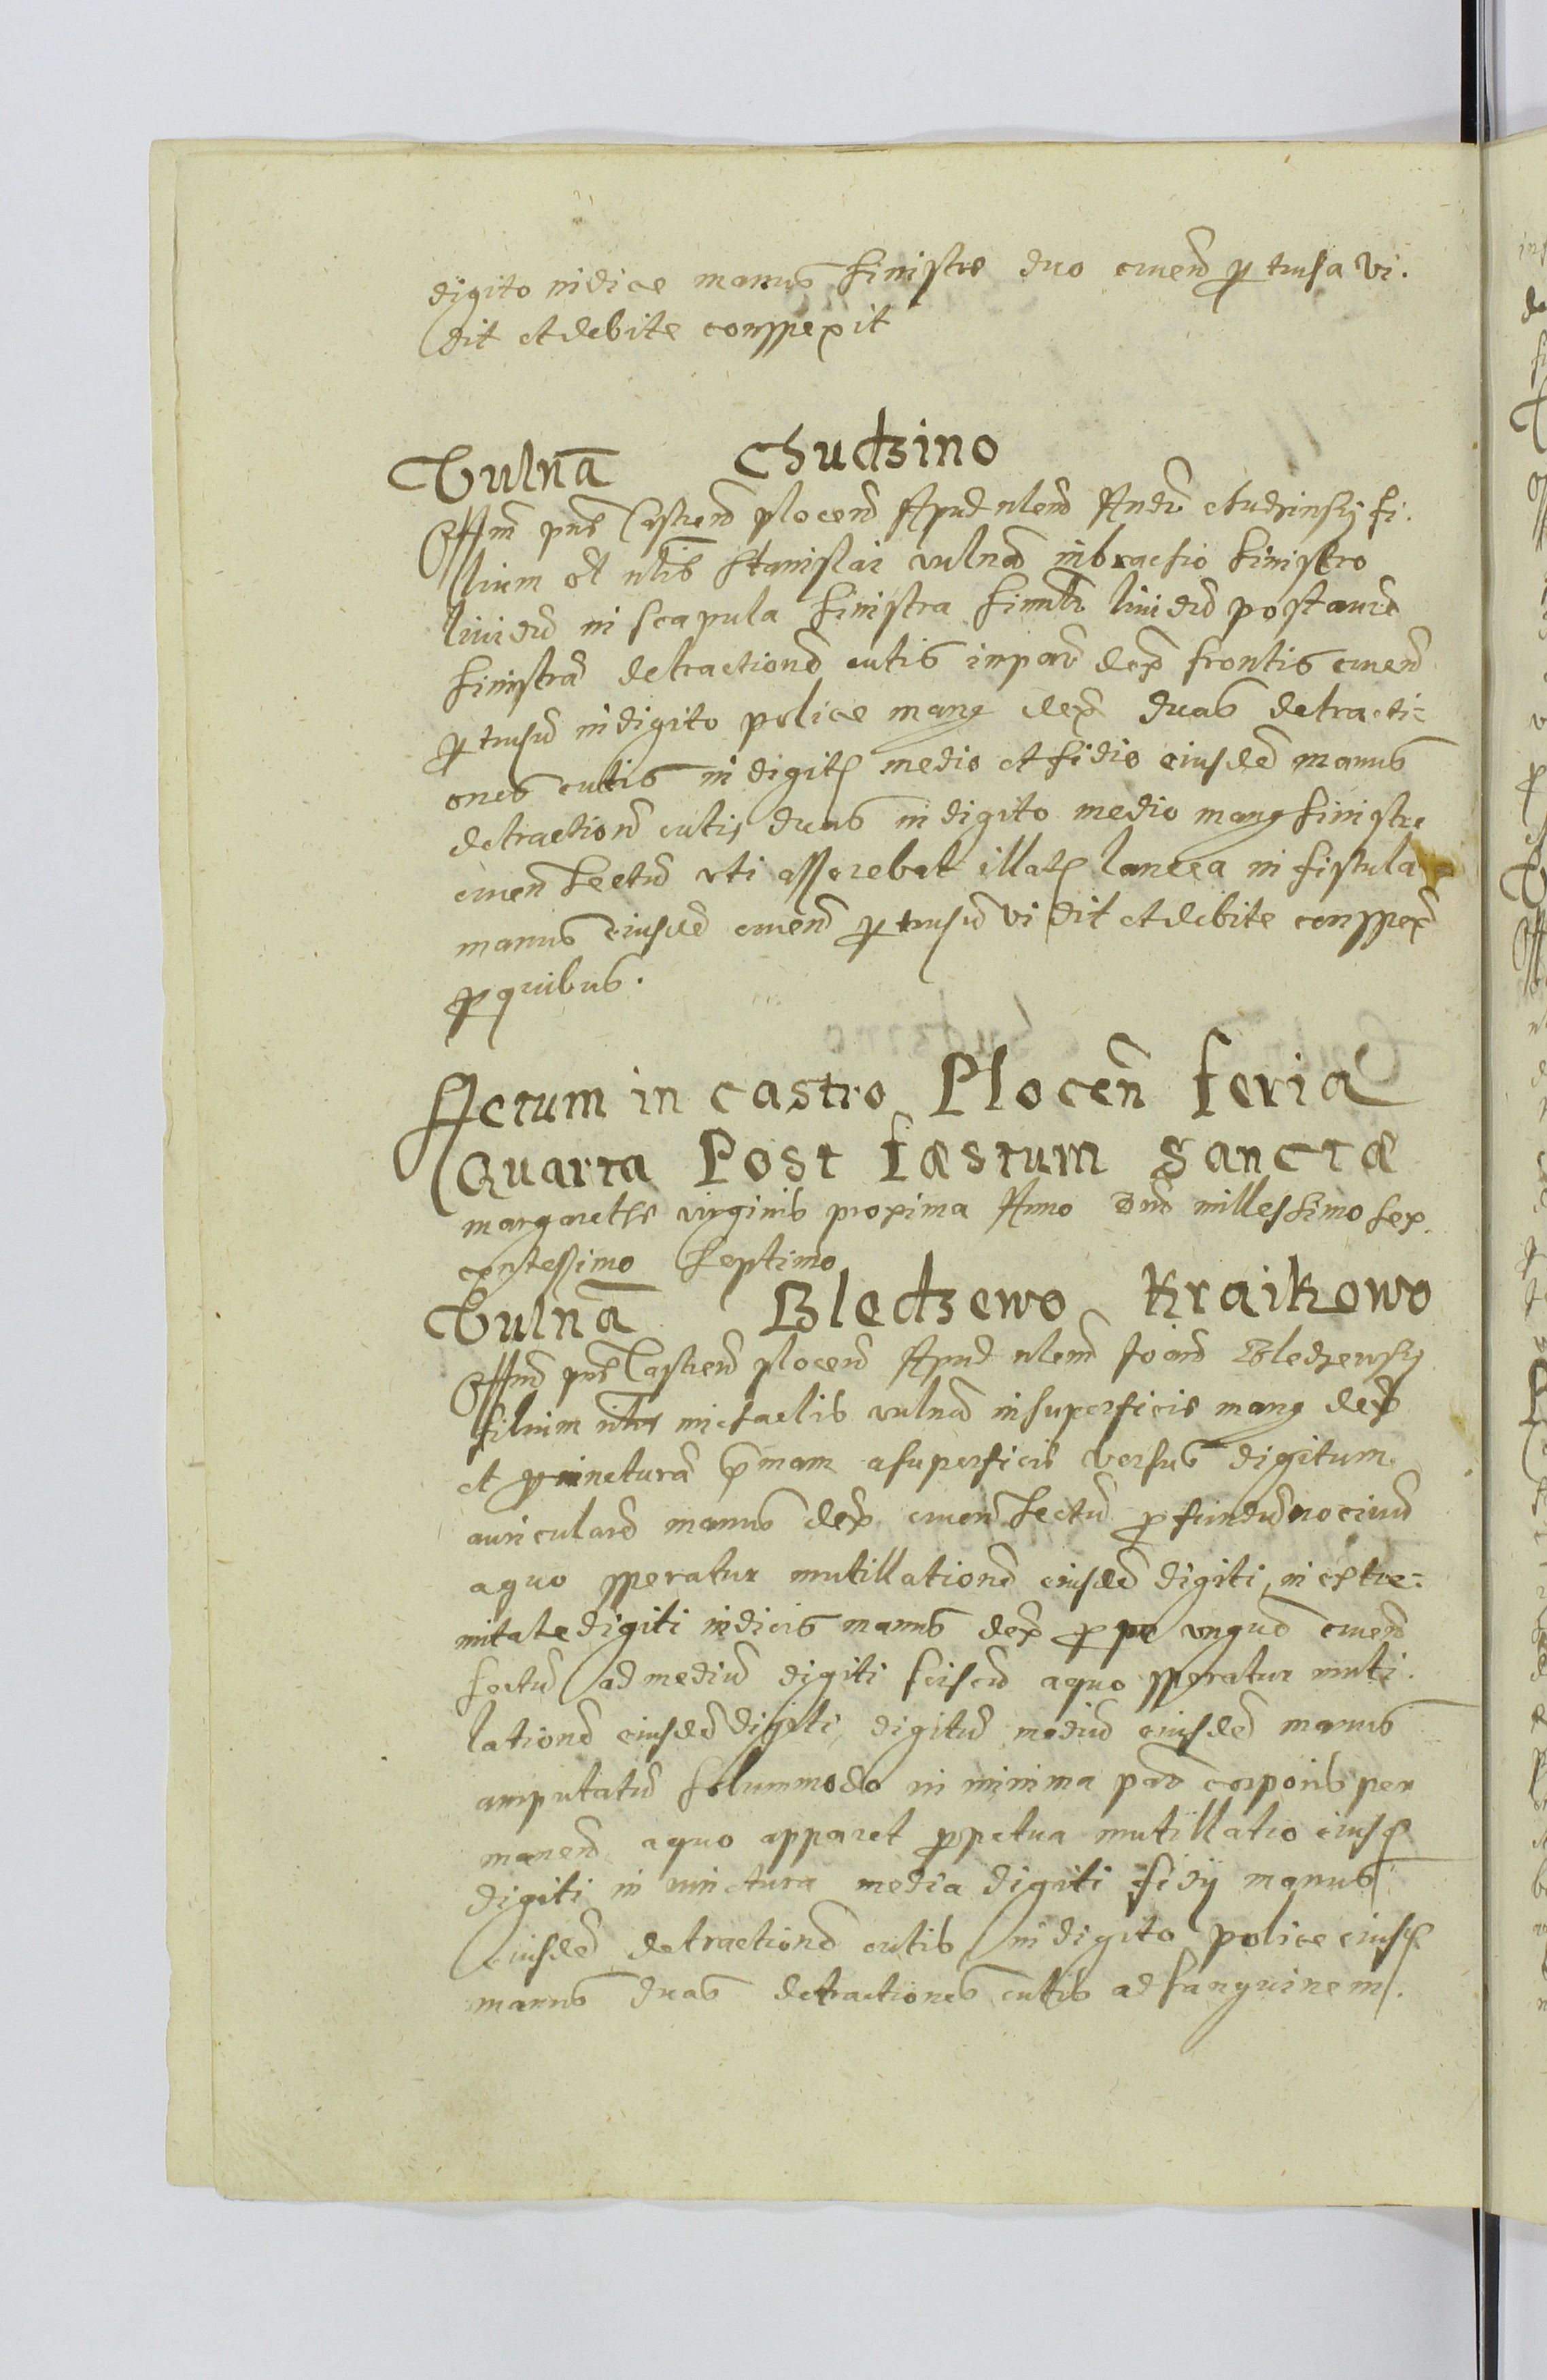 digito indice manus sinistre duo cruen͂ p trusa vi.
dit et debite conspexit
Vulnā Chudzino
Offm pns Castren͂ plocen͂ Apud nlem͂ Andr͂ Chudzinsky fi.
lium olī nlis Stanislai vulnā in brachio sinistro
liuidū in scapula sinistra simīlr liuidū post aurē
sinistrā detractionē cutis in par͂ dex͂ frontis cruen͂
p trusū in digito police mang dex͂ duas detracti=
ones cutis in digit͂ medio et fidio eiusdē manus
detraction͂ cutis duas in digito medio mang sinistre
cruen͂ sectū vti asserebat illat͂ lancea in fistula
manus eiusdē cruen͂ p trusū vidit et debite conspex͂
p quibus.
Actum in castro Plocen͂ feria
Quarta Post fæstum sanctæ
margarethe virginis proxima Anno Dn͂i millessimo sex.
centessimo septimo
Vulnā Bledzewo Kraikowo
Offm pns Castren͂ plocen͂ Apud nlem͂ Joan͂ Bledzewsky
filium nlis michaelis vulnā in superficie mang dex͂
et p iuncturā p͂mam a superficie versus digitum
auricularē manus dex͂ cruen͂ sectū p fundū nociuū
a quo speratur mutillationē eiusdē digiti, in extre=
mitate digiti indicis manus dex͂ p pe vnguē cruen͂
sectū ad mediū digiti scissū a quo speratur muti.
lationē eiusdē digiti, digitū mediū eiusdē manus
amputatū solummodo in minima par͂ corporis per
manen͂ a quo apparet ppetua mutillatio eiusd͂
digiti in iunctura media digiti fidij manus
eiusdē detractionē cutis in digito police eiusd͂
manus duas detractiones cutis ad sanguinem.